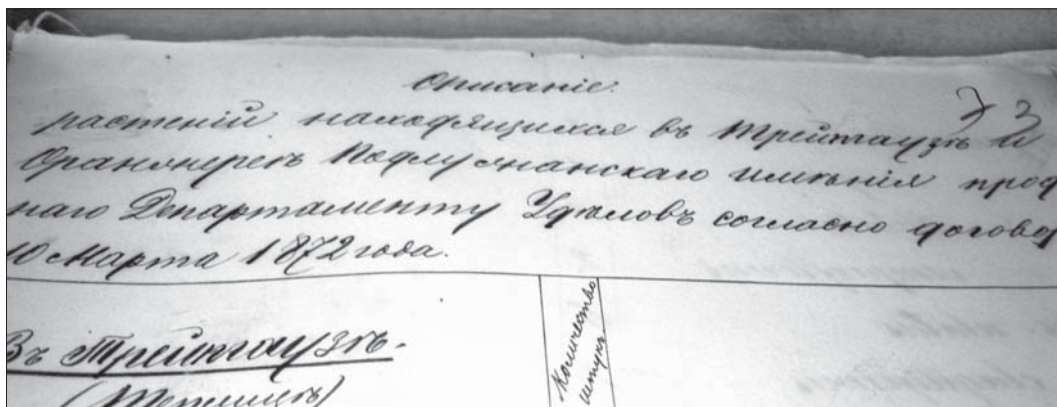 Описаніе.
растеній находящихся въ Трейгаузѣ и
Оранжереѣ имѣнія прод
наго Департаменту Удѣловъ согласно догово
10 Марта 1872 года.
Въ Трейгаузѣ.
(Теплицѣ)
Количество
штукъ